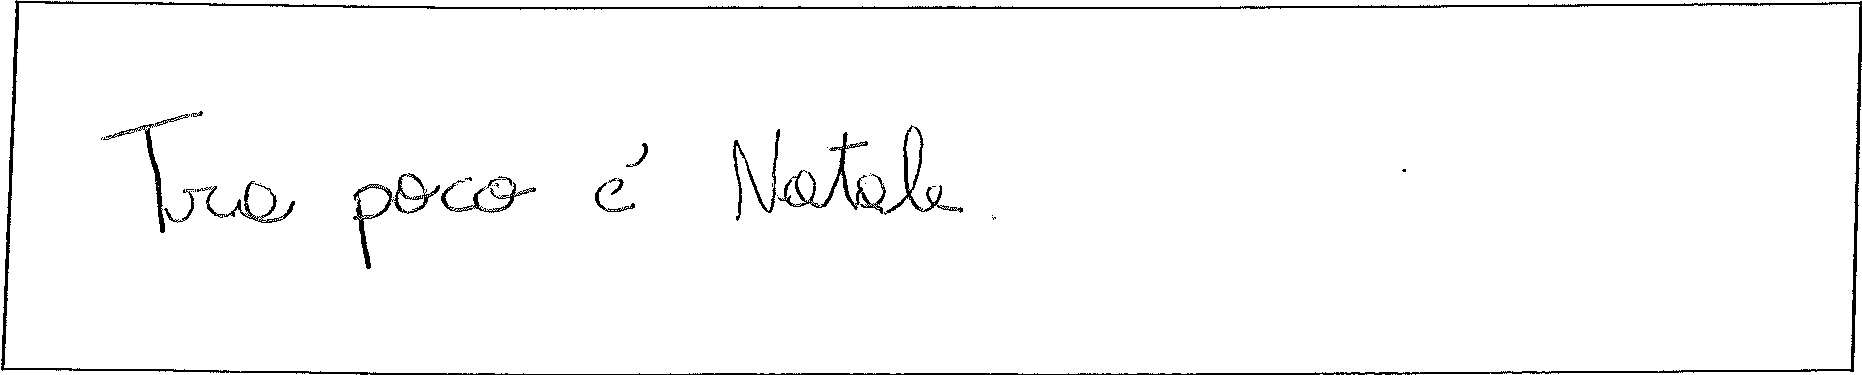 Tra poco é Natale.